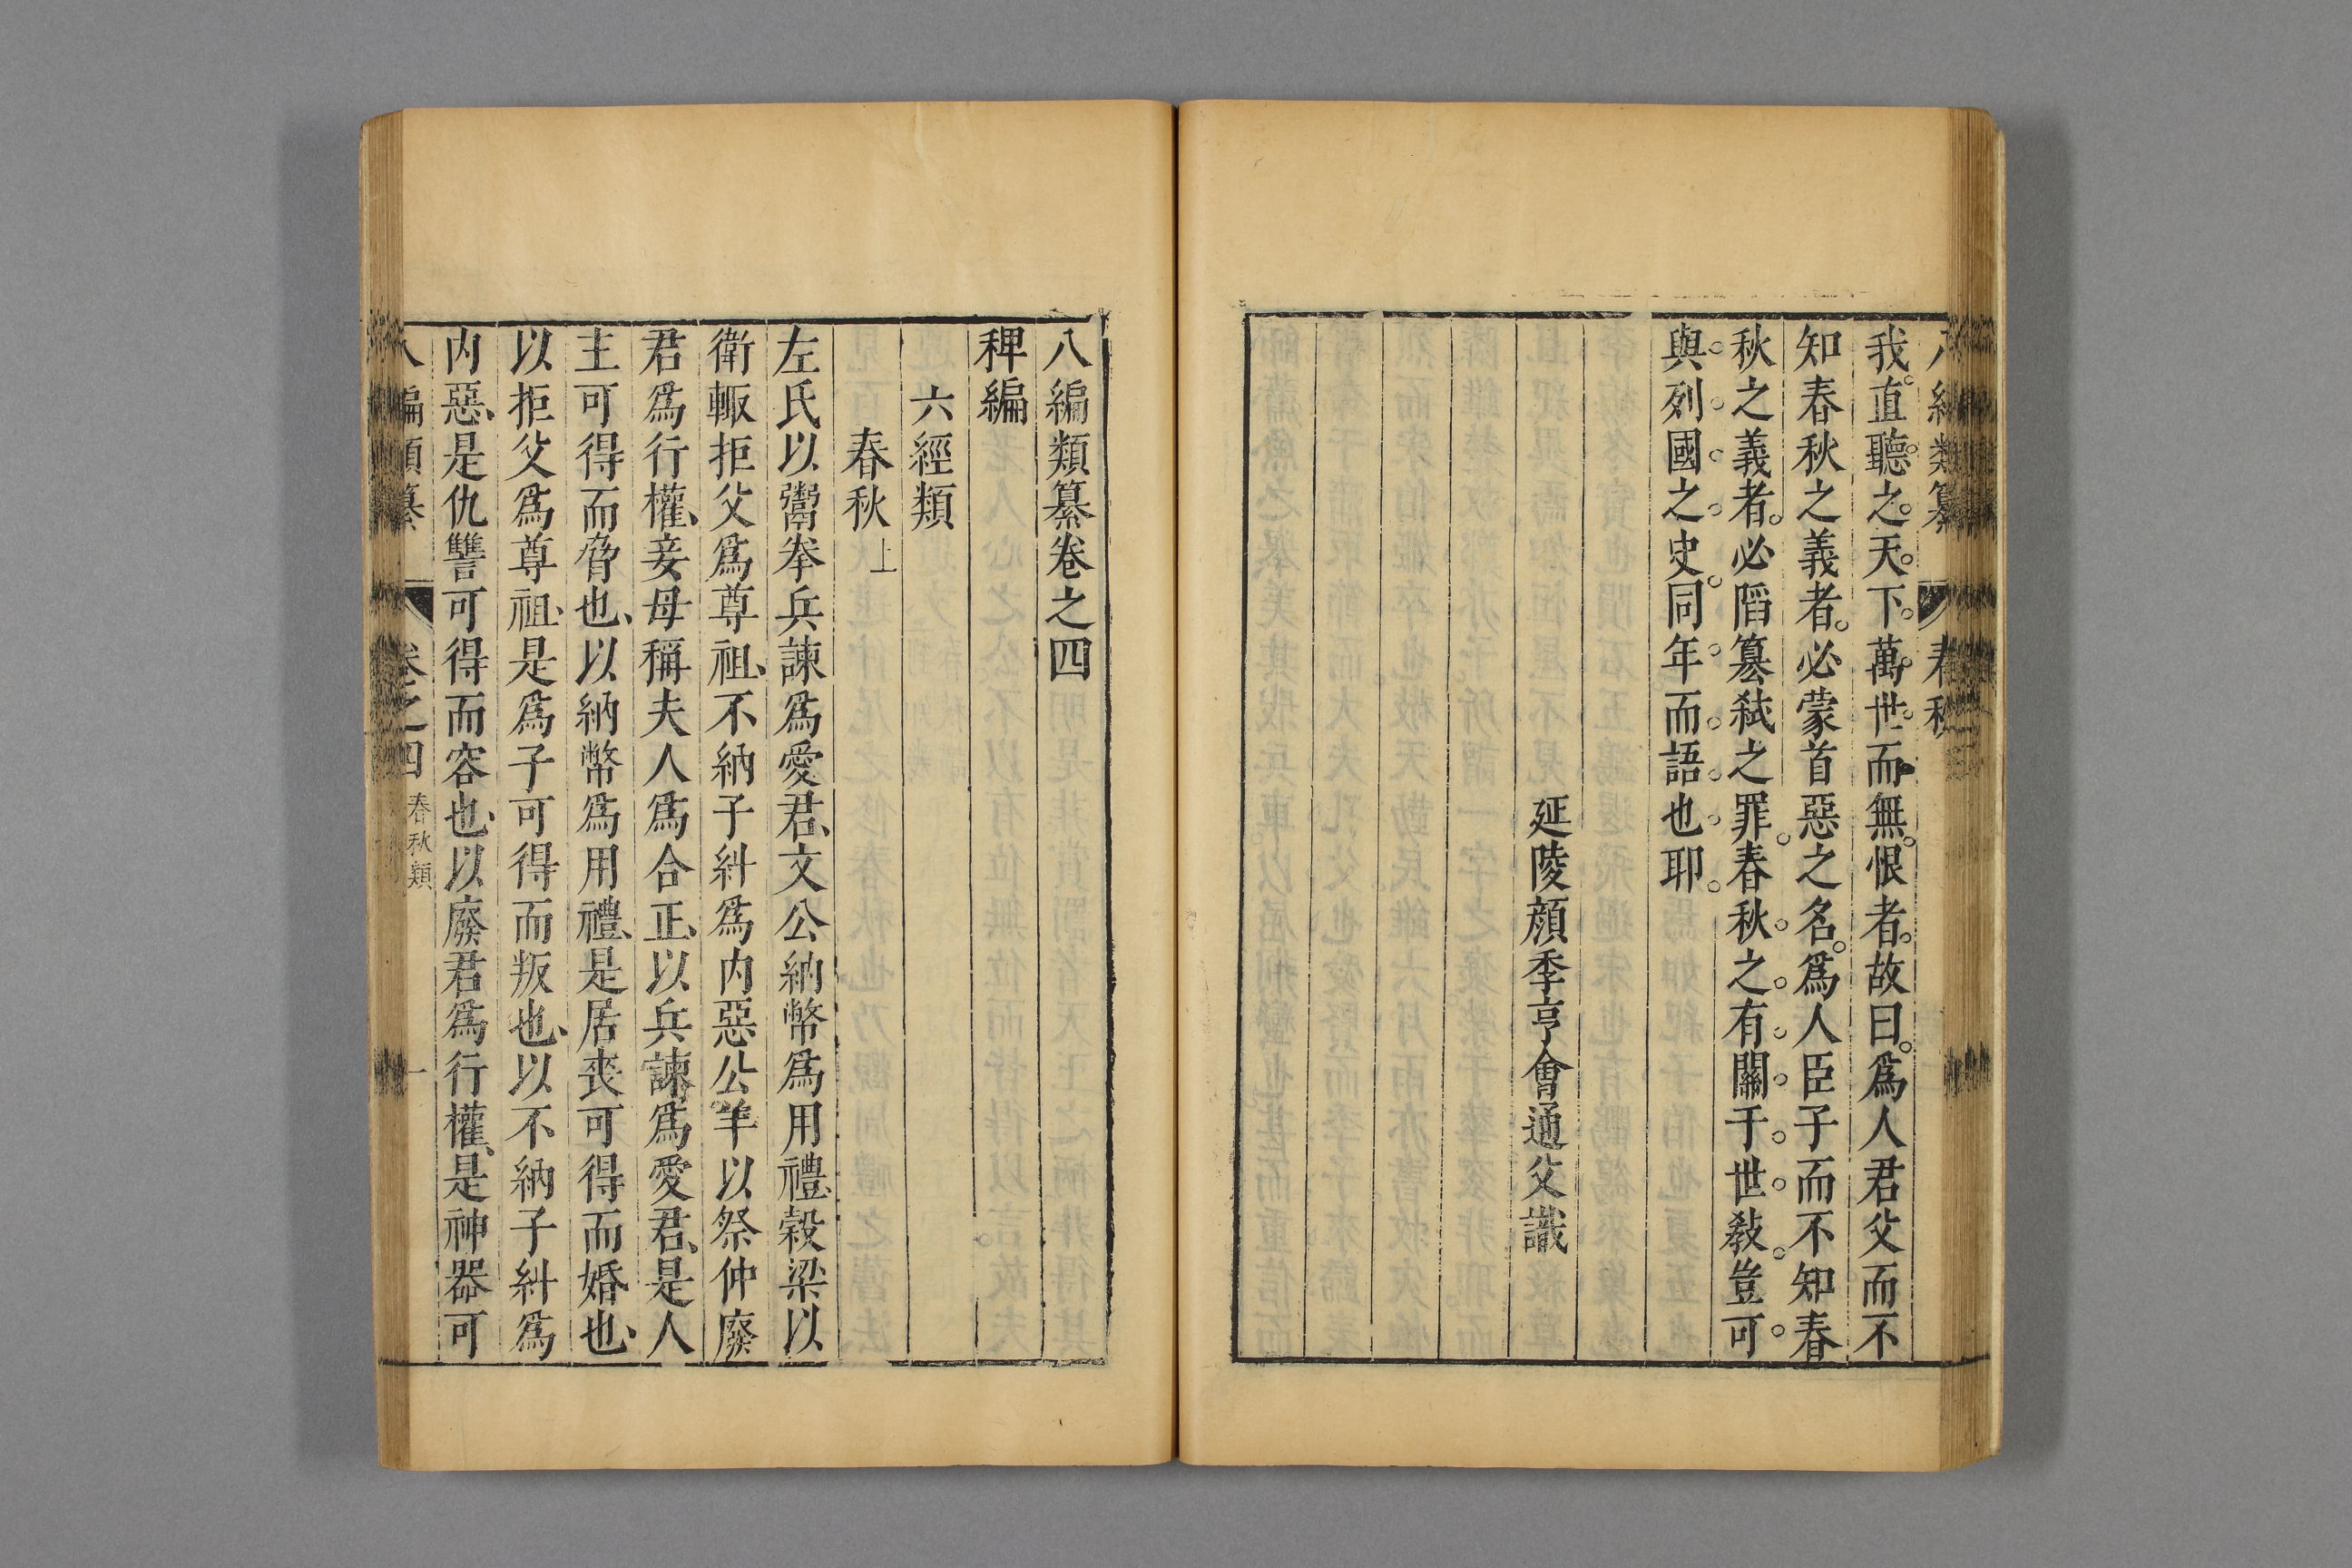 我直聽之天下萬世而無恨者故曰爲人君父而不
知春秋之義者必蒙首惡之名爲人臣子而不知春
秋之義者必陷篡弑之罪春秋之有關于世敎豈可
與列國之史同年而語也耶
延陵顔季亨會通父識
八編類纂卷之四
稗編
六經類
春秋上
左氏以鬻拳兵諫爲愛君文公納幣爲用禮穀梁以
衛輙拒父爲尊祖不納子糾爲内惡公羊以祭仲廢
君爲行權妾母稱夫人爲合正以兵諫爲愛君是人
主可得而脅也以納幣爲用禮是居喪可得而婚也
以拒父爲尊祖是爲子可得而叛也以不納子糾爲
内惡是仇讐可得而容也以廢君爲行權是神器可
八編類纂 卷之四 春秋類 一